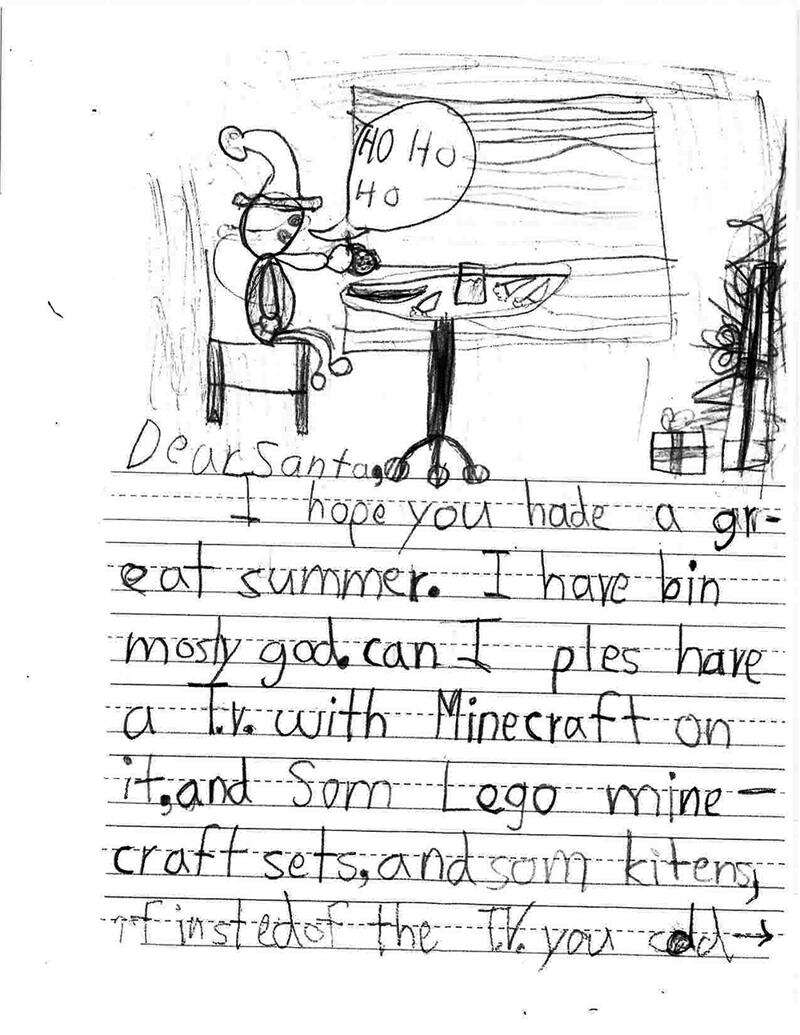 HO HO
HO
Dear Santa,
I hope you hade a gr-
eat summer. I have bin
mosly god. can I ples have
a T.V. with Minecraft on
it, and Som Lego mine-
craft sets, and som kitens,
if insted of the T.V. you codd→